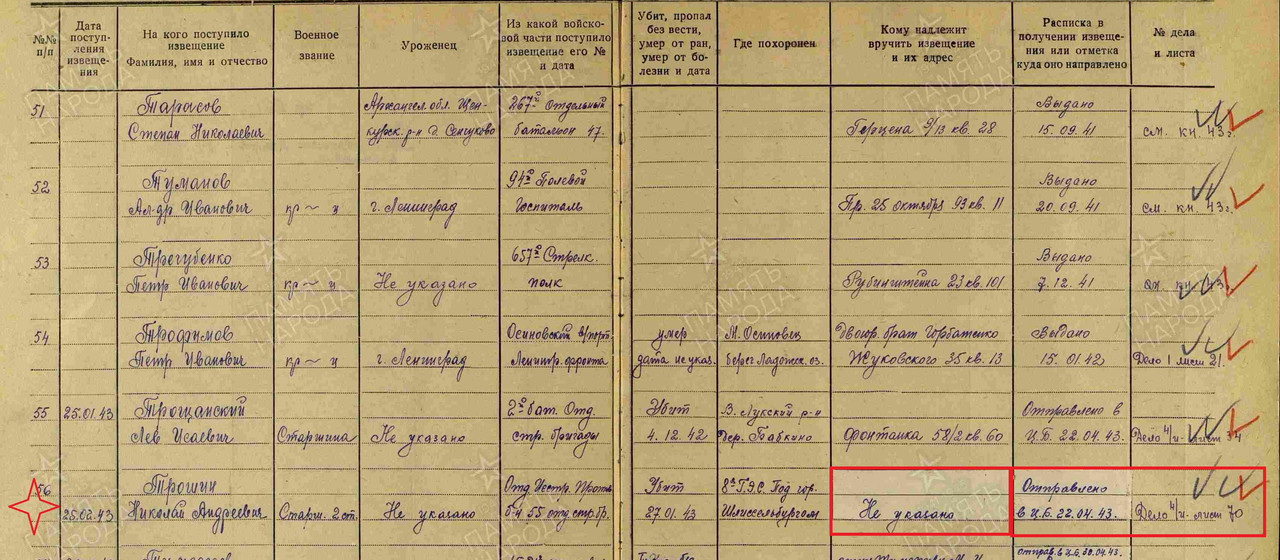 №№ п/п
Дата поступления извещения
На кого поступило извещение
Фамилия, имя и отчество
Военное звание
Уроженец
Из какой войсковой части поступило извещение его № и дата
Убит, пропал без вести, умер от ран, умер от болезни и дата
Где похоронен
Кому надлежит вручить извещение и их адрес
Расписка в получении извещения или отметка куда оно направлено
№ дела и листа
51 Тарасов Архангел. обл. Шен- 267й Отдельный Выдано
Степан Николаевич курск. р-н д. батальон 47. Герцена 9/13 кв. 28 15.09.41 см. кн. 43г.
52 Туманов 94й Полевой Выдано
Ал-др Иванович кр~ц г. Ленинград Госпиталь Пр. 25 октября 93 кв. 11 20.09.41 см. кн. 43г.
53 Трегубенко 657й Стрелк. Выдано
Петр Иванович кр~ц Не указано полк Рубинштейна 23 кв. 101 7.12.41 кн.
54 Трофимов Осиновский в/порт. умер М. Осиновец двоюр. брат Горбатенко Выдано
Петр Иванович кр~ц г. Ленинград Ленингр. фронта дата не указ. берег Ладожск. оз. Жуковского 35 кв. 13 15.01.42 Дело 1 лист 21.
55 25.01.43 Трощанский 2й бат. Отд. Убит В. Лукский р-н Отправлено в
Лев Исаевич Старшина Не указано стр. бригады 4.12.42 дер. Бабкино Фонтанка 58/2 кв. 60 Ц.Б. 22.04.43. Дело 4/н- лист
56 Трошин Отд. Истр. Против Убит 8я Г.Э.С. Под гор. Отправлено
25.02.43 Николай Андреевич Старш. 2 ст. Не указано б-н 55 отд. стр. бр. 27.01.43 Шлиссельбургом Не указано в Ц.Б. 22.04.43. Дело 4/н- лист 70
ПАМЯТЬ НАРОДА